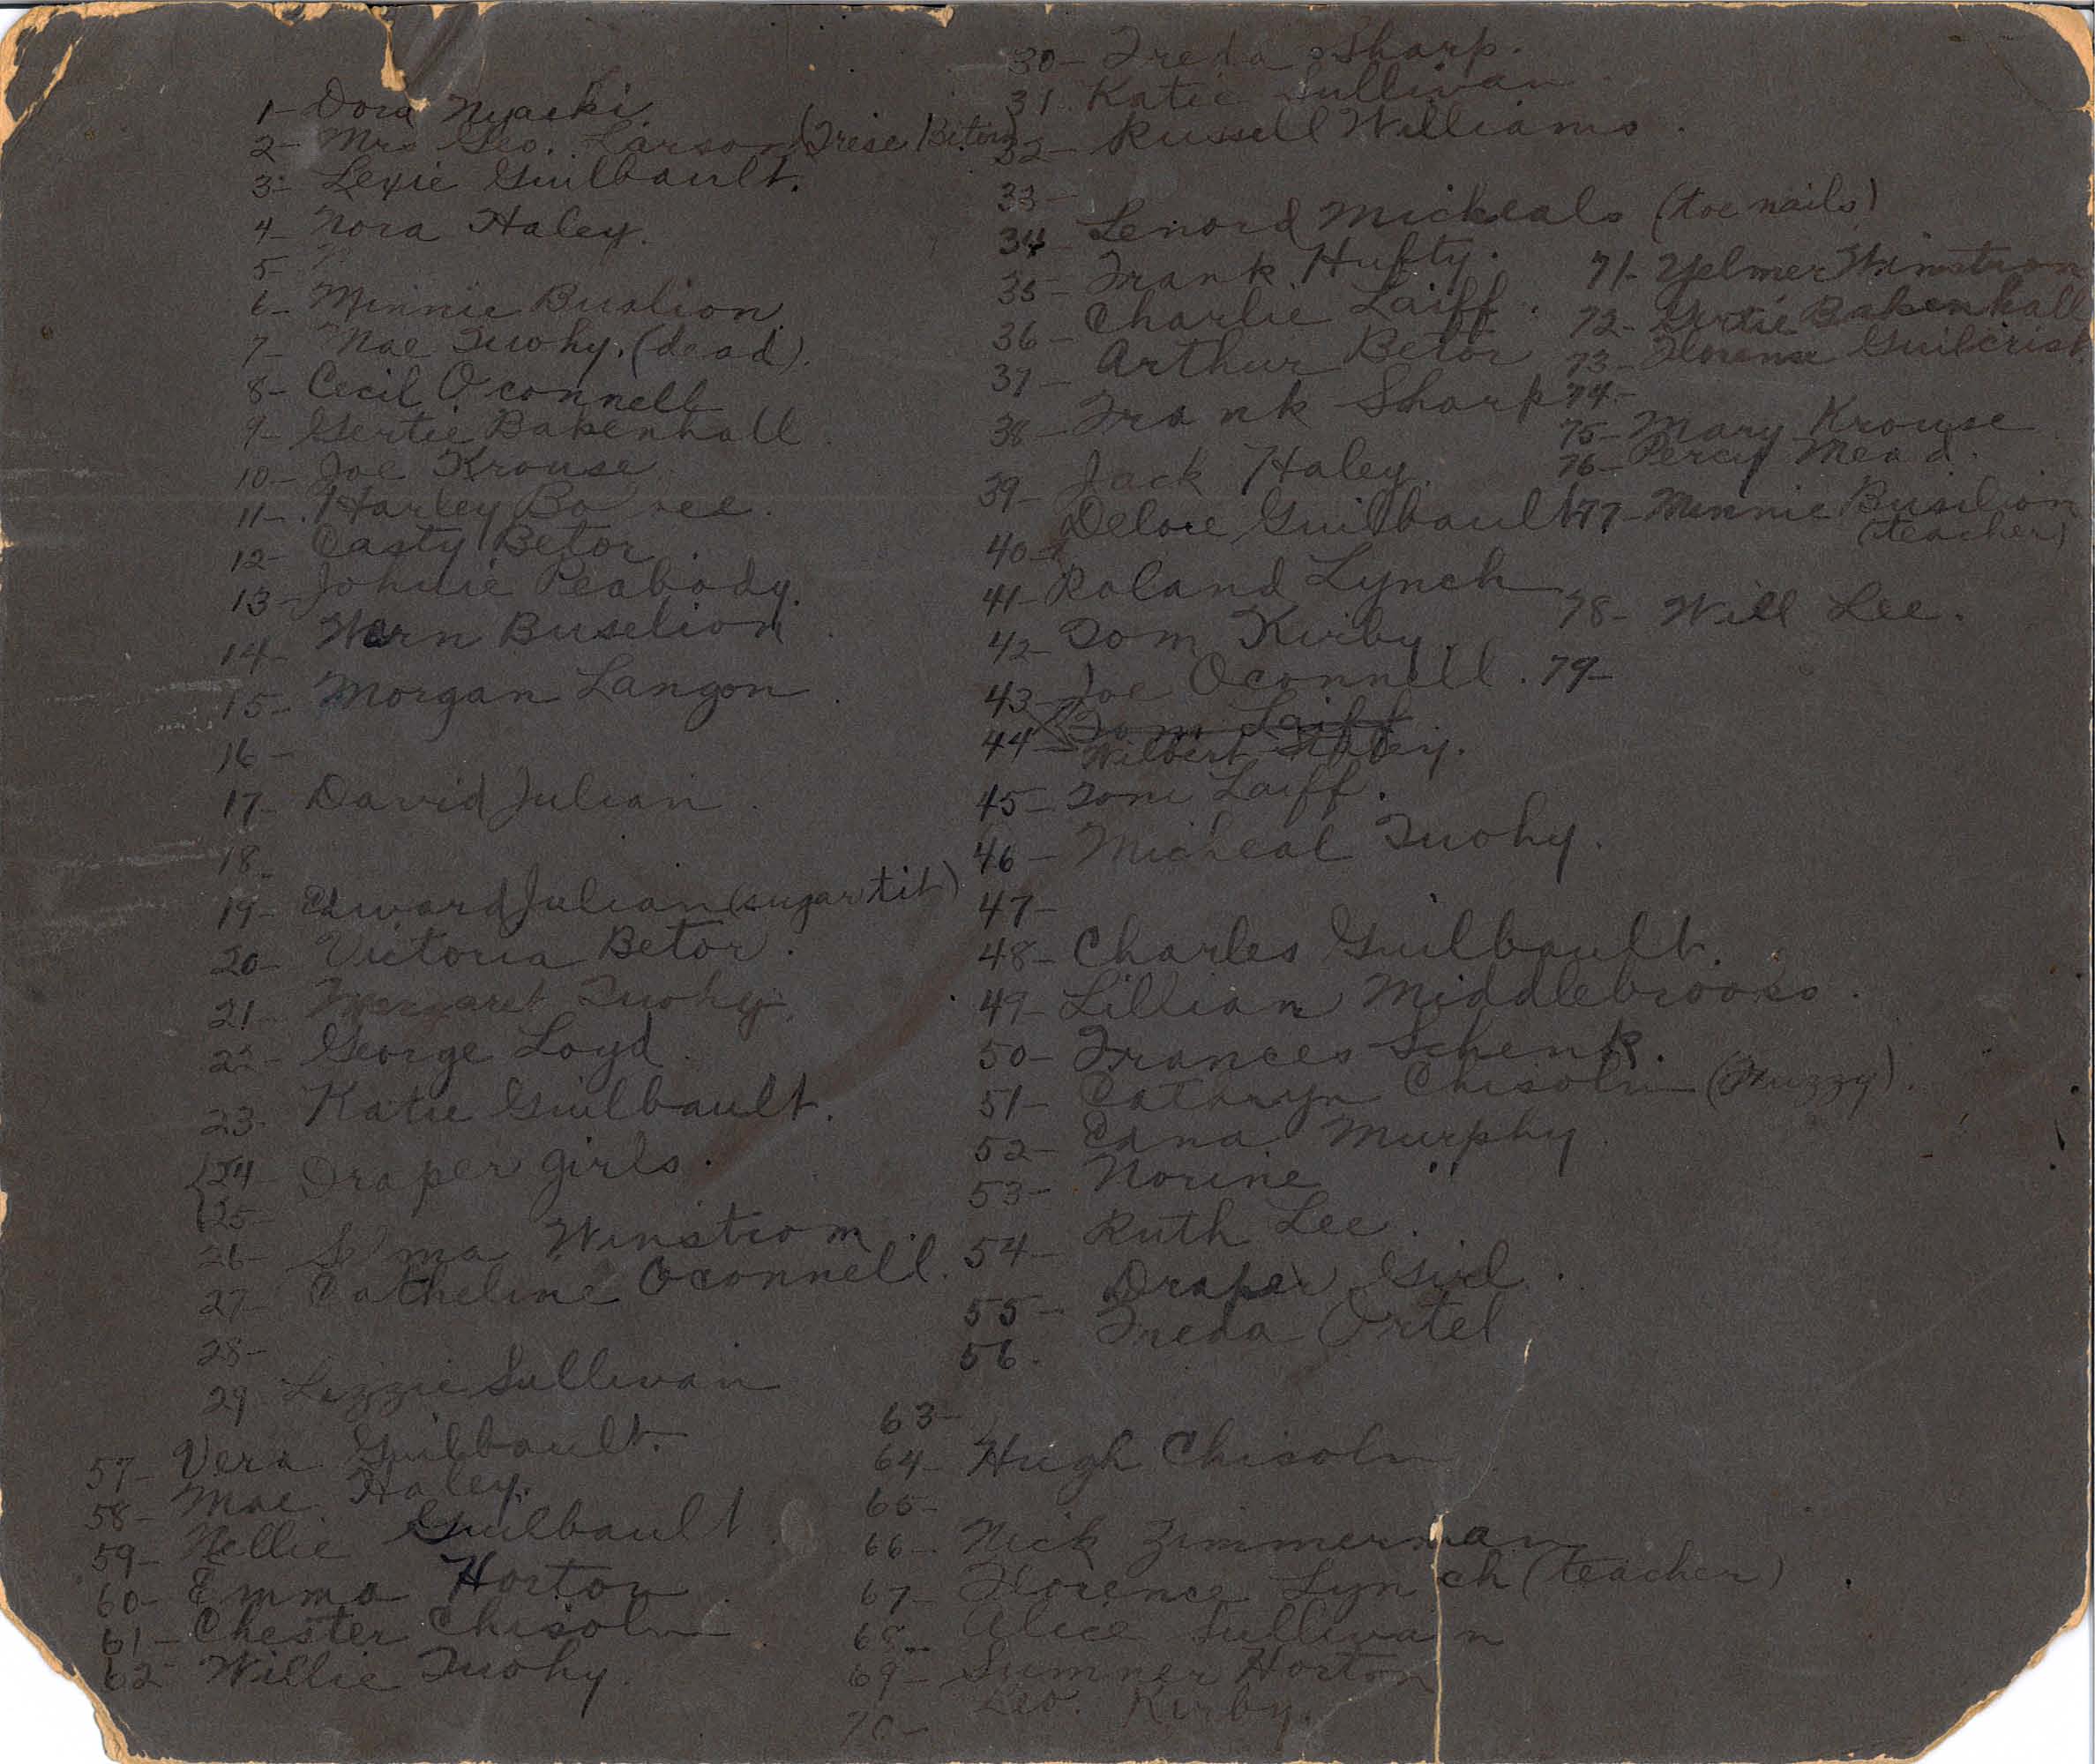 1- Dora Nyaski.
2- Mrs Geo. Larson (Trese Betor)
3- Lexie Guilbault.
4- Nora Haley.
5-
6- Minnie Buslion
7- Mae Tuohy. (dead).
8- Cecil Oconnell
9- Gertie Bakenhall.
10- Joe Krouse.
11- Harley
12- Casty Betor.
13- Johnie Peabody.
14- Wern Buselion.
15- Morgan Langon.
16-
17- David Julian.
18-
19- Edward Julian (sugar tit)
20- Victoria Betor.
21- Margaret Tuohy.
22- George Loyd.
23- Katie Guilbault.
24- Draper girls.
25-
26- Winstrom.
27- Catheline Oconnell.
28-
29- Lizzie Sullivan
30- Freda Sharp.
31. Katie Sullivan
32- Russell Williams.
33-
34- Lenord Mickeals (toe nails)
35- Frank Hufty.
36- Charlie Laiff.
37- Arthur Betor
38- Frank Sharp
39- Jack Haley.
40- Delore Guilbault
41- Roland Lynch
42- Tom Kirby.
43- Joe Oconnell.
44- Tom Laiff.
Wilbert Haley.
45- Tom Laiff.
46- Micheal Tuohy.
47-
48- Charles Guilbault.
49- Lillian Middlebrooks.
50- Frances Schenk.
51- Cataryn Chisolm (Muzzy).
52- Edna Murphy.
53- Norine "
54- Ruth Lee.
55- Draper Girl.
56. Freda Ortel
57- Vera Guilbault.
58- Mae Haley.
59- Nellie Guilbault.
60- Emma Horton.
61- Chester Chisolm
62- Willie Tuohy.
63-
64- Hugh Chisolm
65-
66- Nick Zimmerman
67- Florence Lynch (teacher).
68- Alice Sullivan
69- Sumner Horton
70- Leo. Kirby.
71- Yelmer Winstrom
72- Gertie Bakenhall
73- Florense Guilcrist
74-
75- Mary Krouse
76- Percy Mead.
77- Minnie Busilion
(teacher)
78- Will Lee.
79-